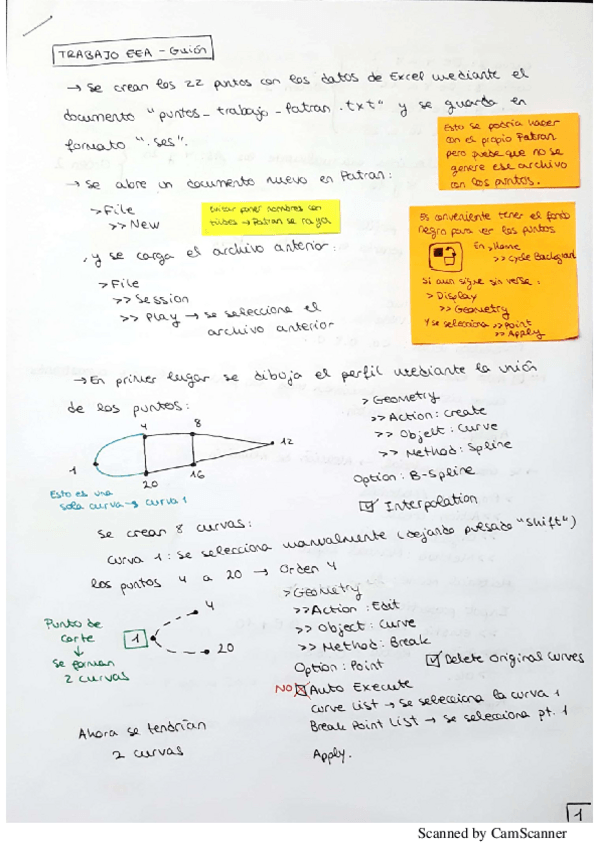 TRABAJO EEA - Guión
→ Se crean los 22 puntos con los datos de Excel mediante el
documento "puntos_trabajo_patran.txt" y se guarda en
formato ".ses".
Esto se podría hacer
con el propio Patran
pero puede que no se
genere ese archivo
con los puntos.
→ Se abre un documento nuevo en Patran:
> File
>> New
Evitar poner nombres con
tildes → Patran se raya
Es conveniente tener el fondo
negro para ver los puntos
En > Home
>> Cycle Background
Si aun sigue sin verse:
> Display
>> Geometry
Y se selecciona >> Point
>> Apply
, y se carga el archivo anterior:
> File
>> Session
>> Play → se selecciona el
archivo anterior
→ En primer lugar se dibuja el perfil mediante la unión
de los puntos:
4
8
12
1
20
16
Esto es una
sola curva → curva 1
> Geometry
>> Action: Create
>> Objelt: Curve
>> Method: Spline
Option: B-Spline
Interpolation
Se crean 8 curvas:
Curva 1: Se selecciona manualmente (dejando pulsado "Shift")
los puntos 4 a 20 → Orden 4
Punto de
corte
↓
Se forman
2 curvas
1
4
20
> Geometry
>> Action: Edit
>> Object: Curve
>> Method: Break
Option: Point
Delete Original Curves
NO Auto Execute
Curve List → Se selecciona la curva 1
Break Point List → se selecciona pt. 1
Apply.
Ahora se tendrían
2 curvas
1
Scanned by CamScanner